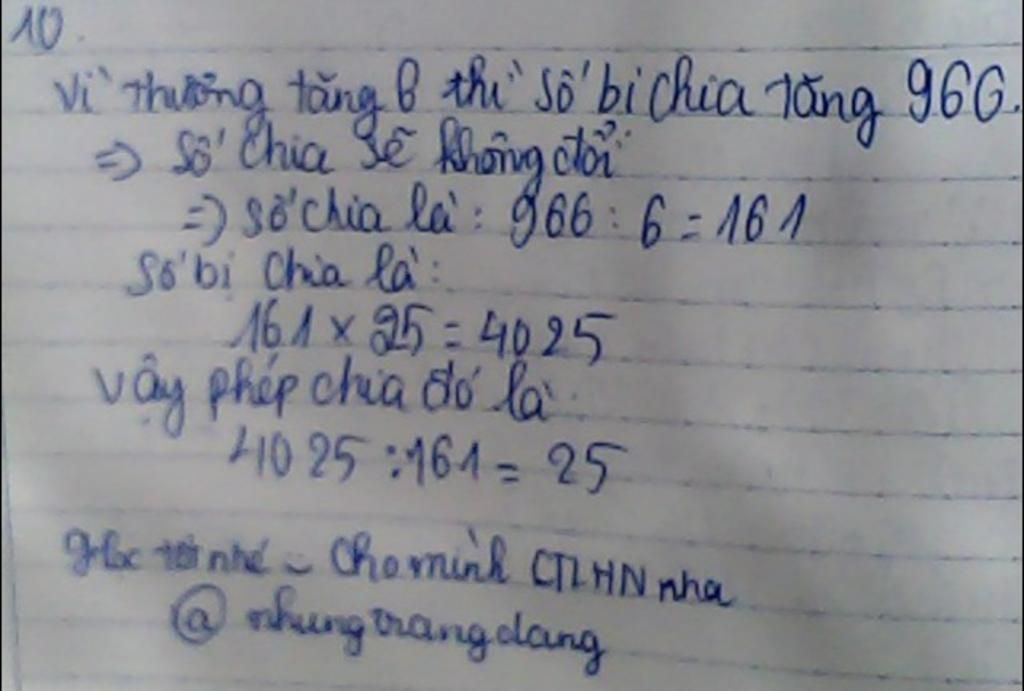 10.
Vì thương tăng 6 thì số bị chia tăng 966.
=> số chia sẽ không đổi
=> số chia là: 966 : 6 = 161
Số bị chia là:
161 x 25 = 4025
Vậy phép chia đó là
4025 : 161 = 25
Học tốt nhé - Cho mình CTLHN nha
@ nhungtrangdang